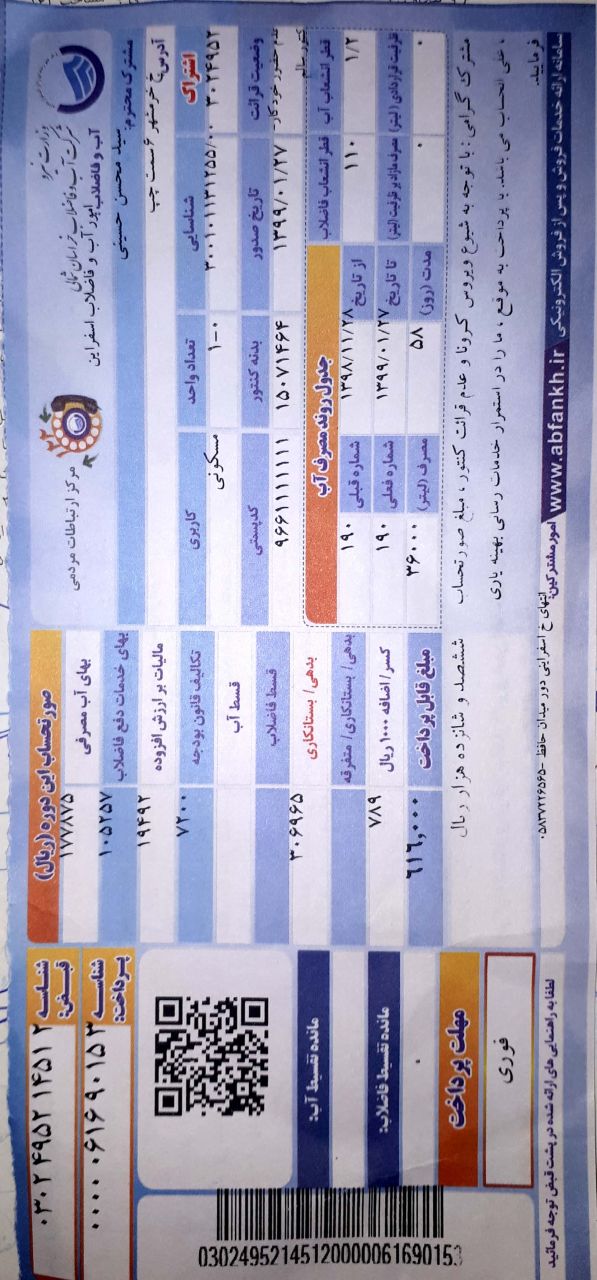 وزارت نیرو
شرکت آب و فاضلاب خراسان شمالی
امور آب و فاضلاب اسفراین
آب و فاضلاب
مرکز ارتباطات مردمی
۱۲۲
مشترک محترم: سید محسن حسینی
آدرس: خ خرمشهر ۶ سمت چپ
اشتراک شناسایی تعداد واحد کاربری
۳۰۲۴۹۵۲ ۳۰۰۲۰۱۱۳۱۲۵۵/۰۰ ۱-۰ مسکونی
وضعیت قرائت تاریخ صدور بدنه کنتور کدپستی
عدم حضور خودکار- ۱۳۹۹/۰۱/۲۷ ۱۵۰۷۱۴۶۴ ۹۶۶۱۱۱۱۱۱۱
کنتور سالم
قطر انشعاب آب قطر انشعاب فاضلاب
۱/۲ ۱۱۰
ظرفیت قراردادی (لیتر) مصرف مازاد بر ظرفیت (لیتر)
۰ ۰
جدول روند مصرف آب
از تاریخ ۱۳۹۸/۱۱/۲۸ شماره قبلی ۱۹۰
تا تاریخ ۱۳۹۹/۰۱/۲۷ شماره فعلی ۱۹۰
مدت (روز) ۵۸ مصرف (لیتر) ۳۶۰۰۰
مشترک گرامی: با توجه به شیوع ویروس کرونا و عدم قرائت کنتور، مبلغ صورتحساب
، علی الحساب می باشد. با پرداخت به موقع، ما را در استمرار خدمات رسانی بهینه یاری
فرمایید.
سامانه ارائه خدمات فروش و پس از فروش الکترونیکی www.abfankh.ir
امور مشترکین: انتهای خ اسفراینی دور میدان حافظ -۰۵۸۳۷۲۲۶۵۶۵
صورتحساب این دوره (ریال)
بهای آب مصرفی ۱۷۷/۸۷۵
بهای خدمات دفع فاضلاب ۱۰۵۲۵۷
مالیات بر ارزش افزوده ۱۹۴۹۲
تکالیف قانون بودجه ۷۲۰۰
قسط آب
قسط فاضلاب
بدهی/ بستانکاری ۳۰۶۹۶۵
بدهی/ بستانکاری/ متفرقه
کسر/ اضافه ۱۰۰۰ ریال ۷۸۹
مبلغ قابل پرداخت ۶۱۶,۰۰۰
ششصد و شانزده هزار ریال
شناسه قبض: ۰۳۰۲۴۹۵۲۱۴۵۱۲
شناسه پرداخت: ۰۰۰۰۰۶۱۶۹۰۱۵۳
مانده تقسیط آب:
مانده تقسیط فاضلاب: ۰
مهلت پرداخت
فوری
لطفا به راهنمایی های ارائه شده در پشت قبض توجه فرمائید
03024952145120000061690153